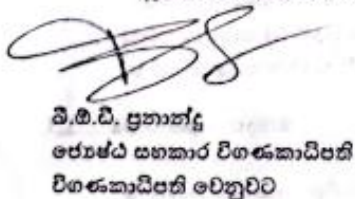 බී.ඕ.ඩී. ප්‍රනාන්දු
ජ්‍යෙෂ්ඨ සහකාර විගණකාධිපති
විගණකාධිපති වෙනුවට